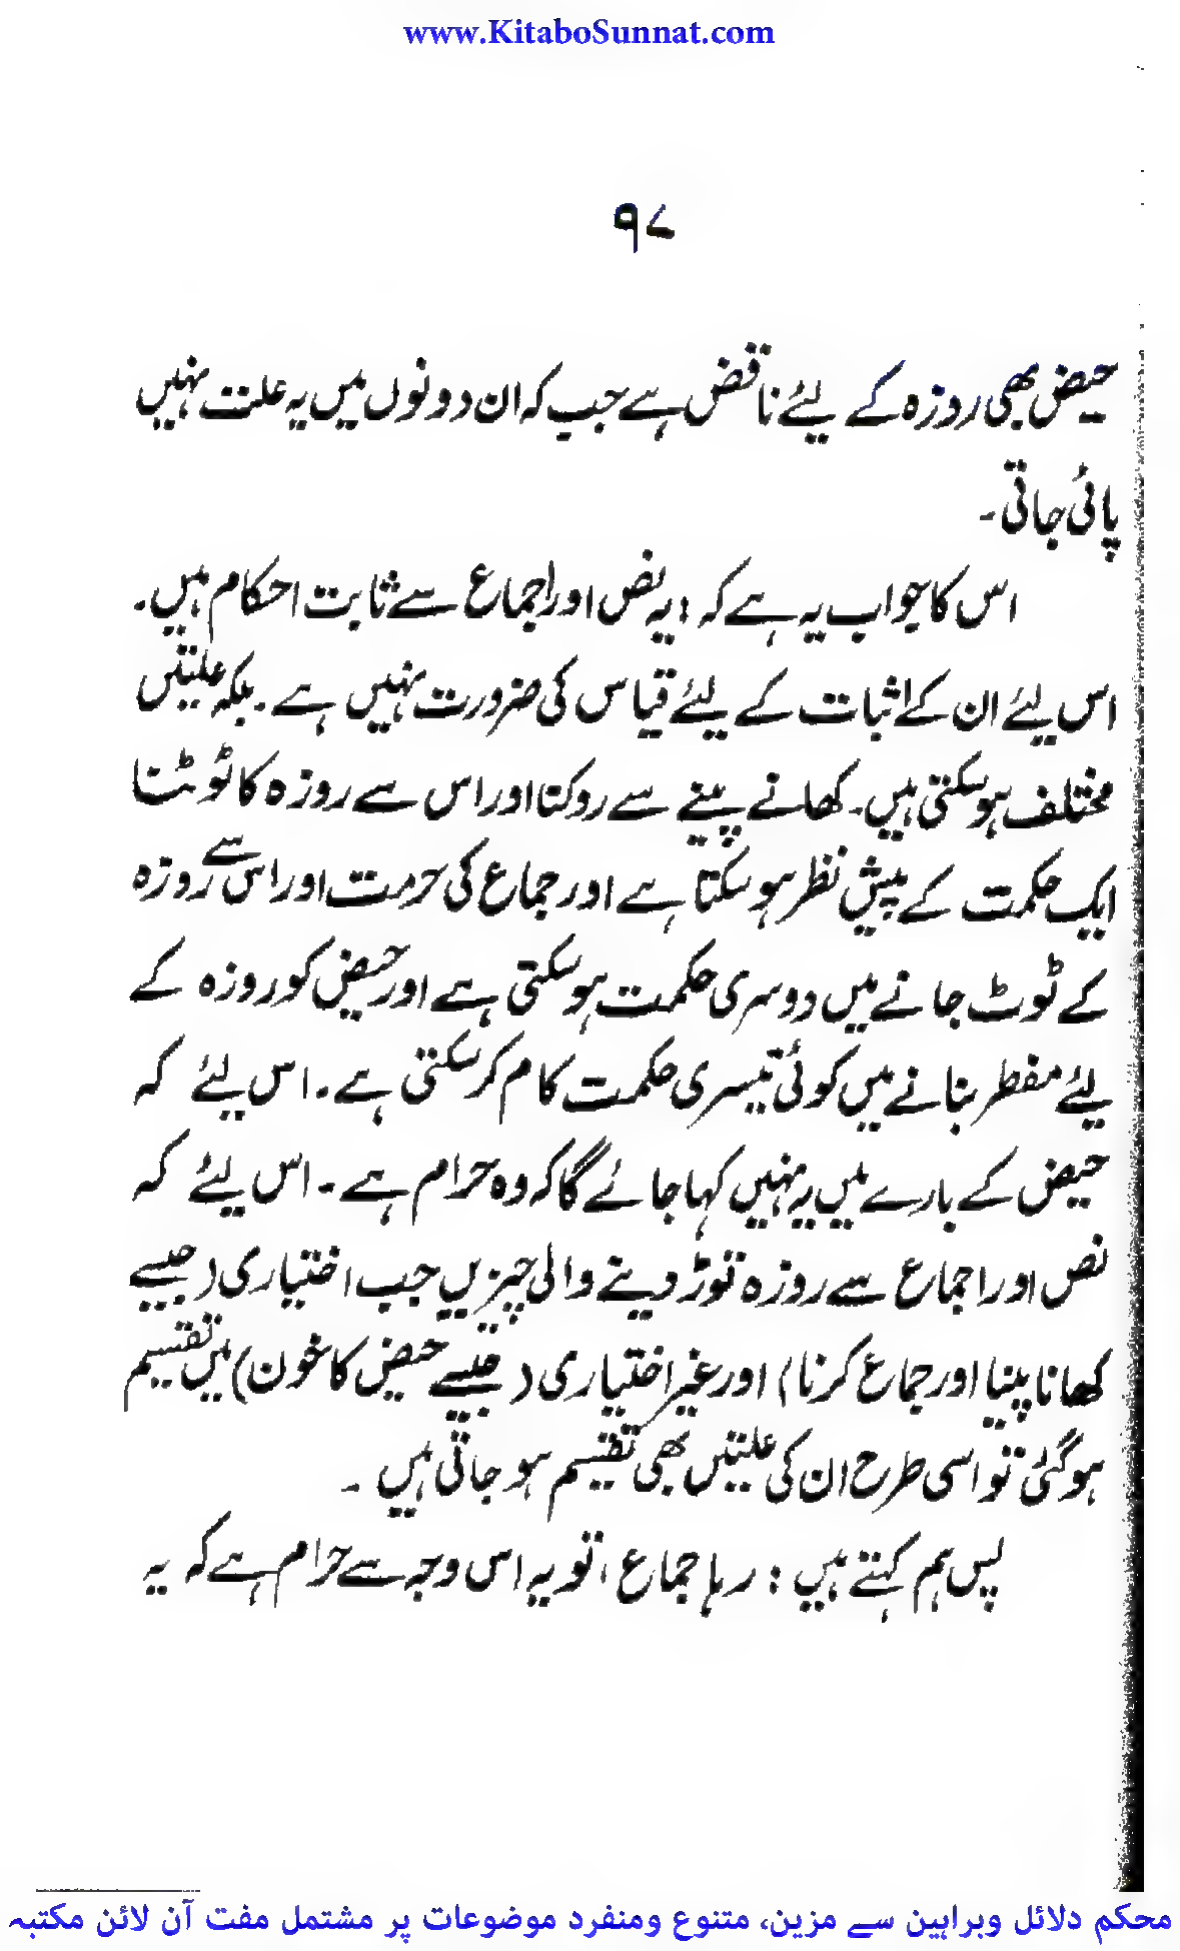 www.KitaboSunnat.com
۹۷
حیض بھی روزہ کے لئے ناقض ہے جب کہ ان دونوں میں یہ علت نہیں
پائی جاتی۔
اس کا جواب یہ ہے کہ : یہ نص اور اجماع سے ثابت احکام ہیں۔
اس لئے ان کے اثبات کے لئے قیاس کی ضرورت نہیں ہے۔ بلکہ علیتیں
مختلف ہوسکتی ہیں۔ کھانے پینے سے روکنا اور اس سے روزہ کا ٹوٹنا
ایک حکمت کے پیش نظر ہوسکتا ہے اور جماع کی حرمت اور اس سے روزہ
کے ٹوٹ جانے میں دوسری حکمت ہوسکتی ہے اور حیض کو روزہ کے
لئے مفطر بنانے میں کوئی تیسری حکمت کام کرسکتی ہے۔ اس لئے کہ
حیض کے بارے میں یہ نہیں کہا جائے گا کہ وہ حرام ہے۔ اس لئے کہ
نص اور اجماع سے روزہ توڑ دینے والی چیزیں جب اختیاری (جیسے
کھانا پینا اور جماع کرنا) اور غیر اختیاری (جیسے حیض کا خون) میں تقسیم
ہوگئی تو اسی طرح ان کی علیتیں بھی تقسیم ہوجاتی ہیں ۔
پس ہم کہتے ہیں : رہا جماع ، تو یہ اس وجہ سے حرام ہے کہ یہ
محکم دلائل وبراہین سے مزین، متنوع ومنفرد موضوعات پر مشتمل مفت آن لائن مکتبہ